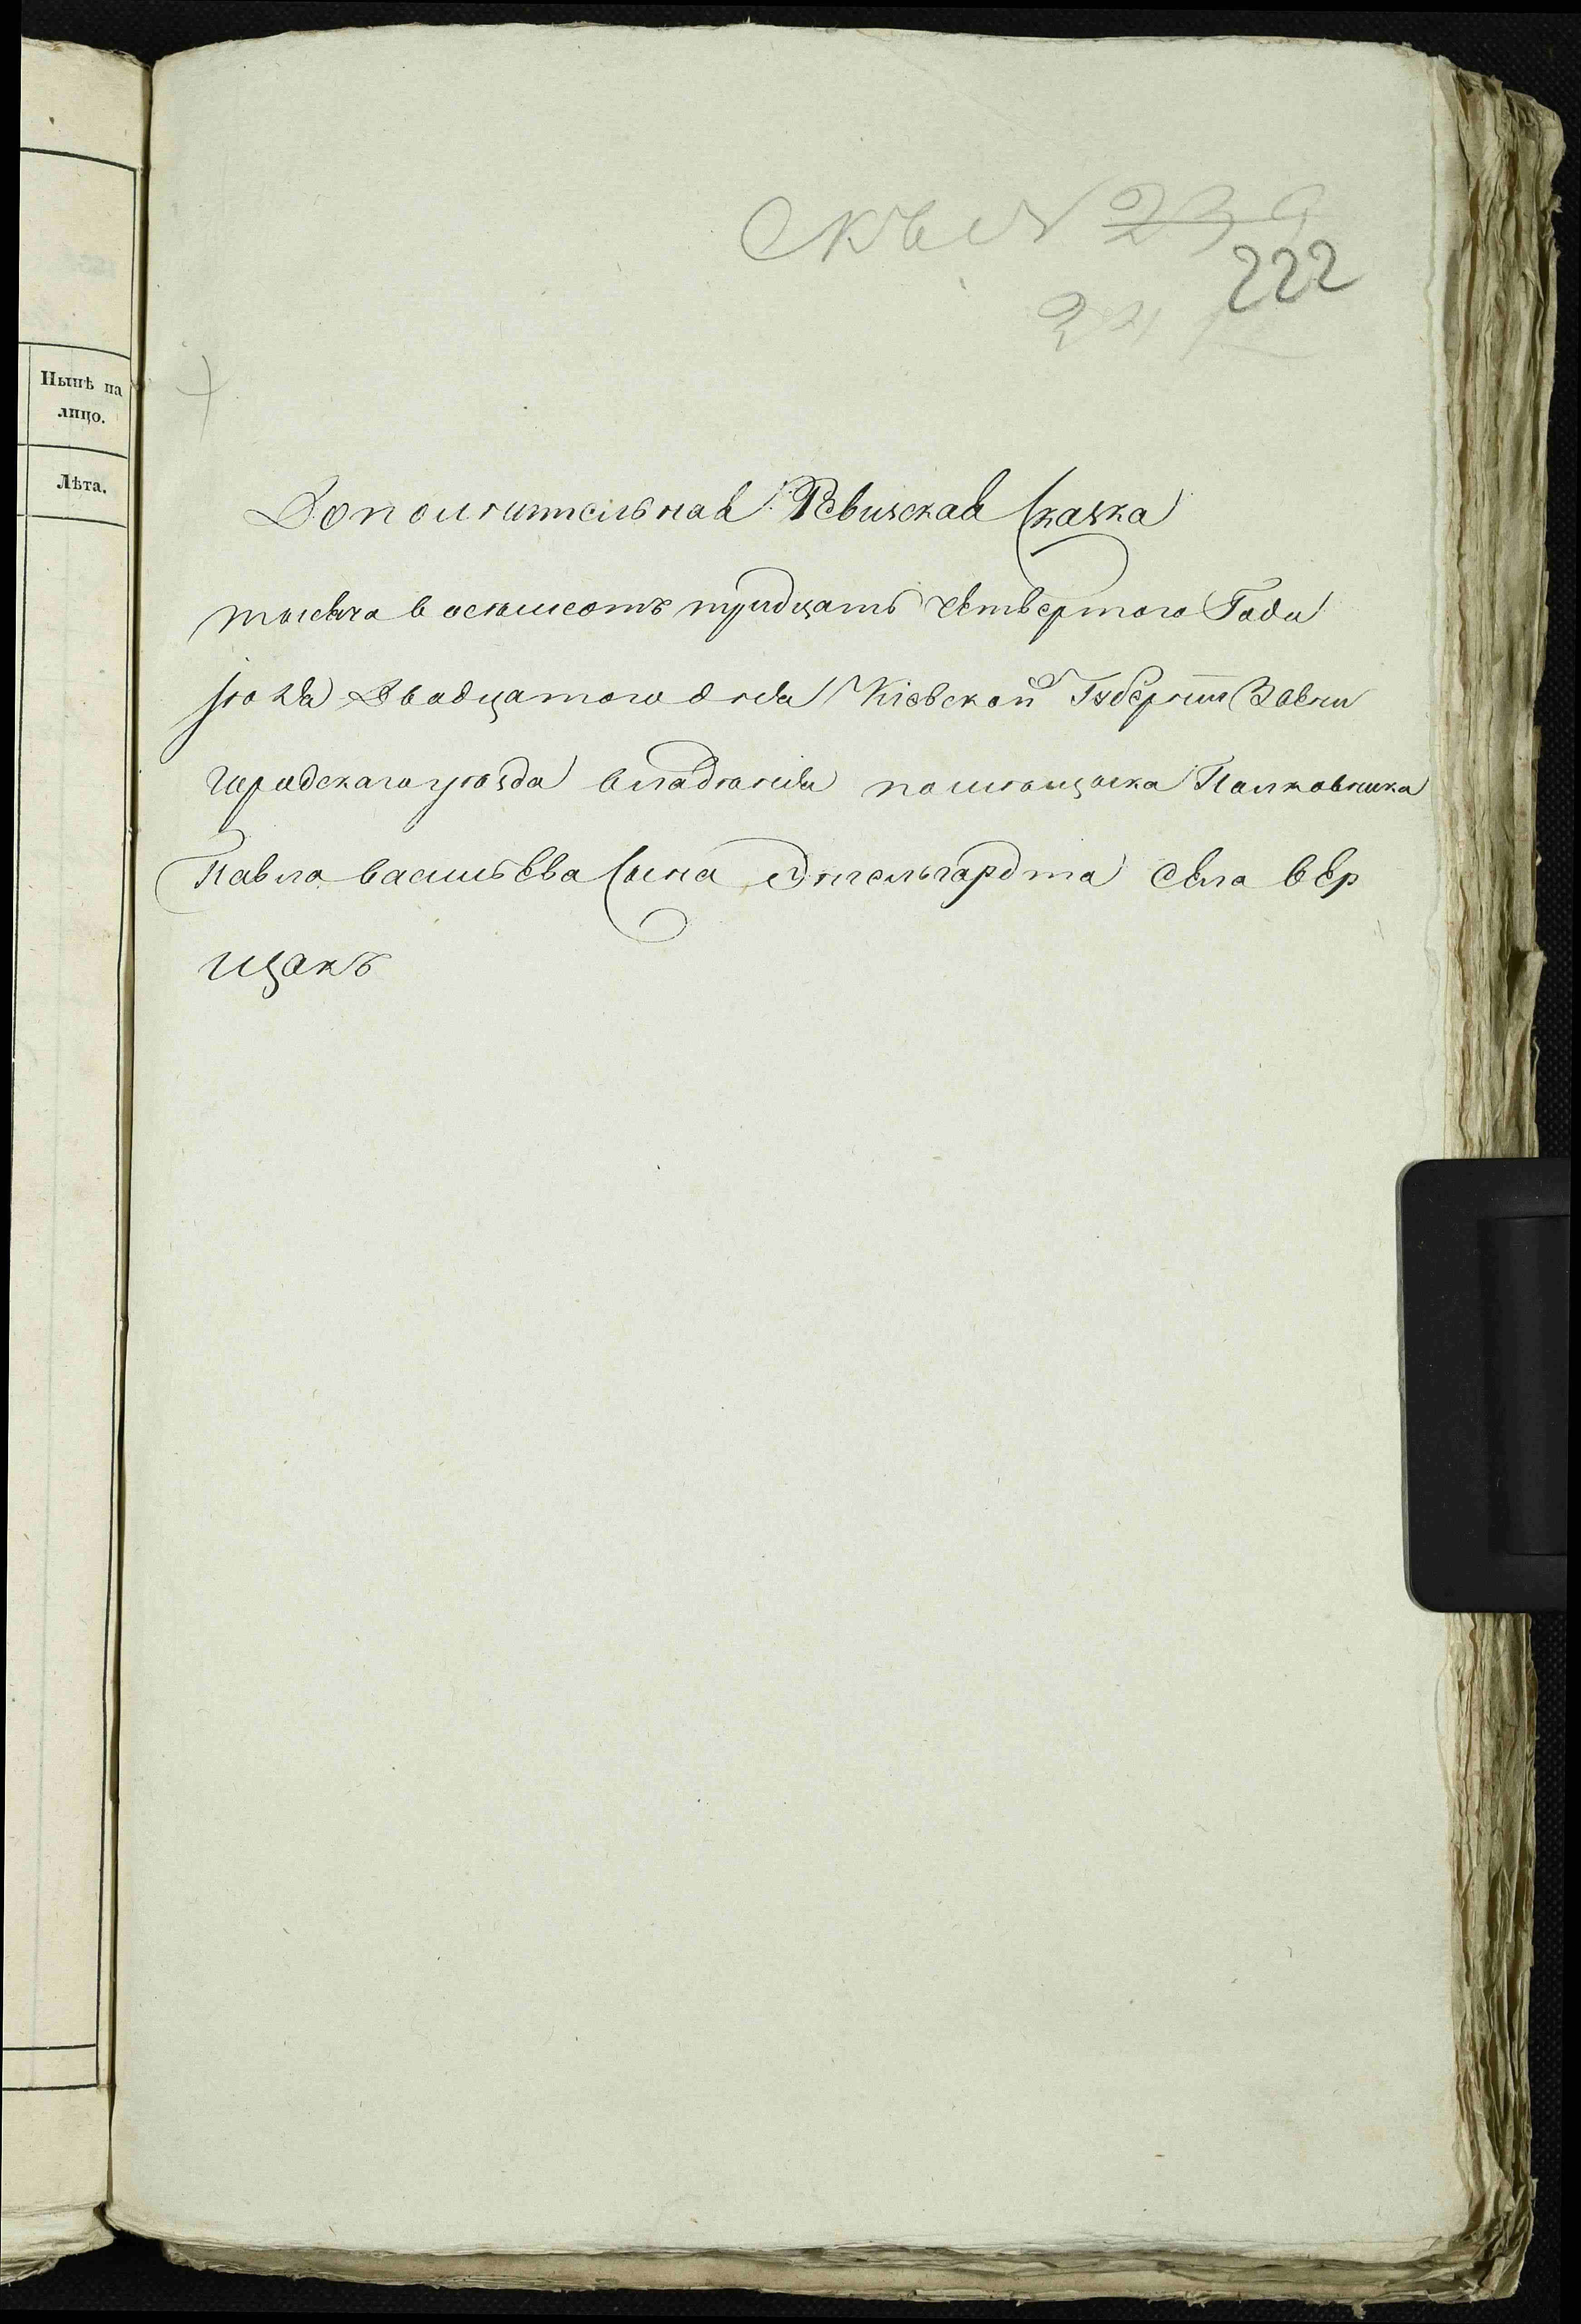 222
Нынѣ на
лицо.
Лѣта.
Дополнительная Ревизская Сказка
тысяча восемьсотъ тридцать четвертого Года
Іюля Двадцатого дня Кіевской Губерніи Звени
городскаго уѣзда владѣнія помѣщика Полковника
Павла васильева Сына Энгельгардта села вер
щакъ